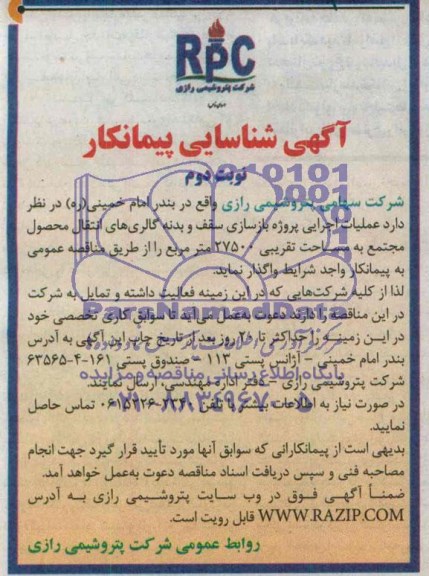 RPC
شرکت پتروشیمی رازی
آگهی شناسایی پیمانکار
نوبت دوم
شرکت سهامی پتروشیمی رازی واقع در بندر امام خمینی(ره) در نظر
دارد عملیات اجرایی پروژه بازسازی سقف و بدنه گالری‌های انتقال محصول
مجتمع به مساحت تقریبی ۲۷۵۰۰ متر مربع را از طریق مناقصه عمومی
به پیمانکار واجد شرایط واگذار نماید.
لذا از کلیه شرکت‌هایی که در این زمینه فعالیت داشته و تمایل به شرکت
در این مناقصه را دارند دعوت به‌عمل می‌آید تا سوابق کاری تخصصی خود
در این زمینه را حداکثر تا ۲۰ روز بعد از تاریخ چاپ این آگهی به آدرس
بندر امام خمینی - آژانس پستی ۱۱۳ - صندوق پستی ۱۶۱-۴-۶۳۵۶۵
شرکت پتروشیمی رازی - دفتر اداره مهندسی، ارسال نمایند.
در صورت نیاز به اطلاعات بیشتر با تلفن تماس حاصل
نمایید.
بدیهی است از پیمانکارانی که سوابق آنها مورد تأیید قرار گیرد جهت انجام
مصاحبه فنی و سپس دریافت اسناد مناقصه دعوت به‌عمل خواهد آمد.
ضمناً آگهی فوق در وب سایت پتروشیمی رازی به آدرس
WWW.RAZIP.COM قابل رویت است.
روابط عمومی شرکت پتروشیمی رازی
ParsNamadData
پایگاه اطلاع رسانی مناقصه و مزایده
۰۲۱-۸۸۳۴۹۶۷۰-۵